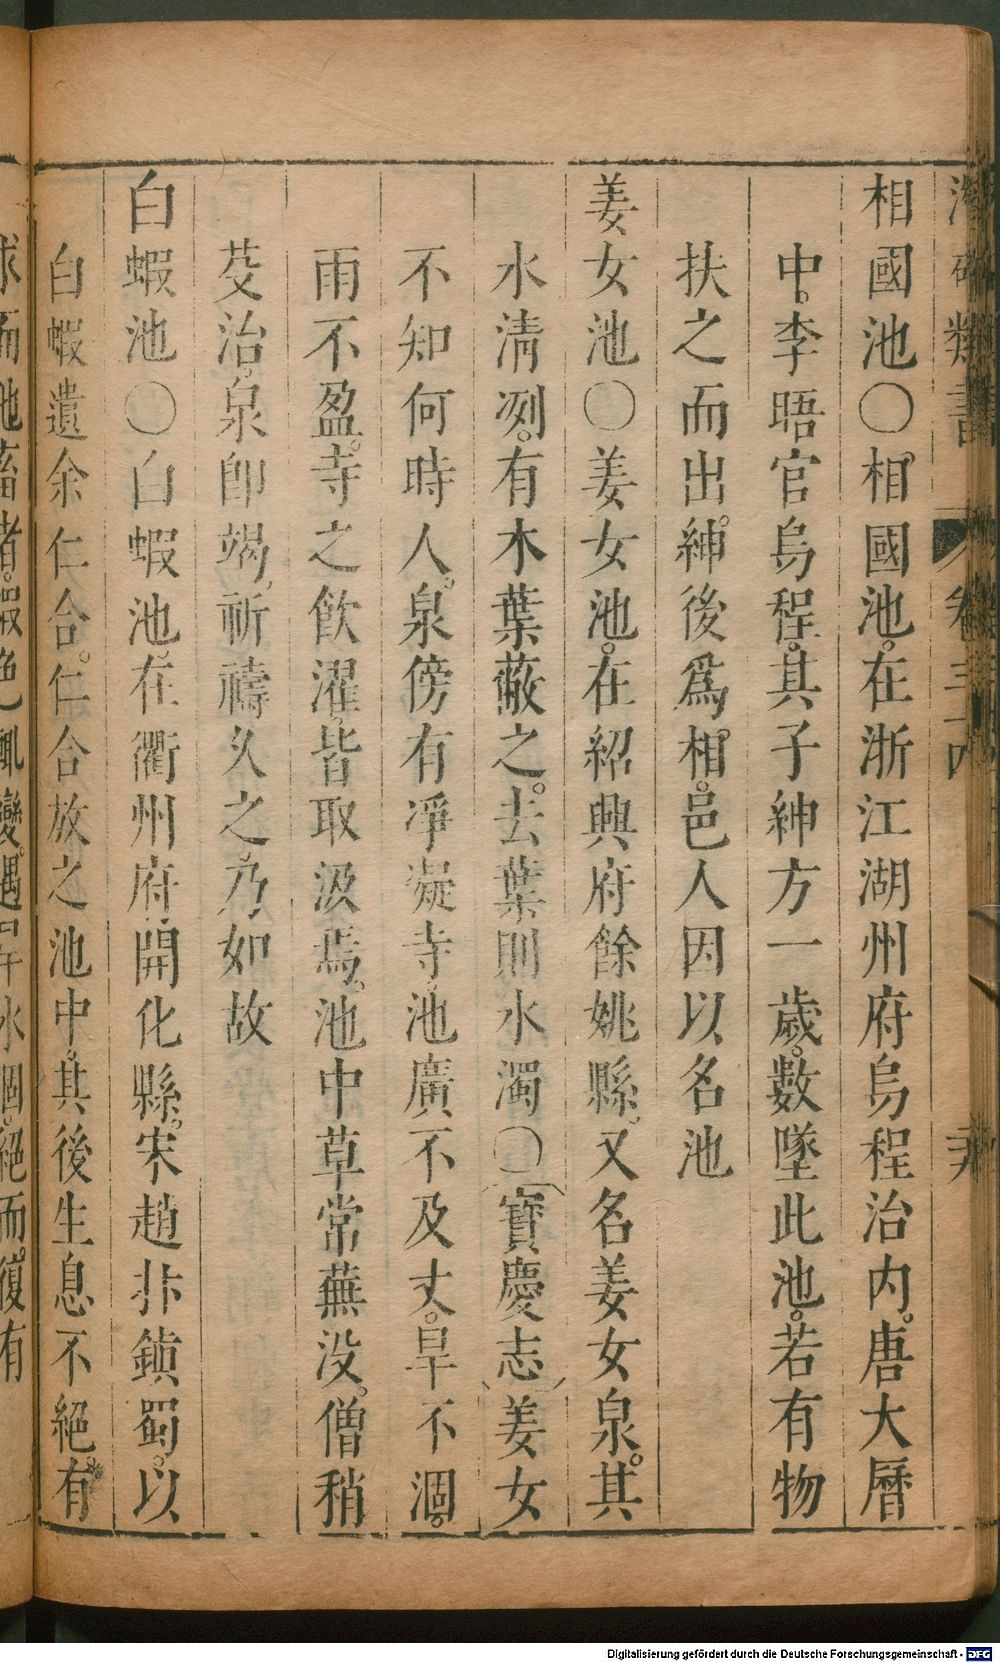 相國池〇相國池。在浙江湖州府烏程治内。唐大曆
中。李晤官烏程。其子紳方一歲。數墜此池。若有物
扶之而出。紳後爲相。邑人因以名池
姜女池〇姜女池。在紹興府餘姚縣。又名姜女泉。其
水清冽。有木葉蔽之。去葉則水濁〇(寶慶志)姜女
不知何時人。泉傍有淨凝寺。池廣不及丈。旱不涸。
雨不盈。寺之飲濯。皆取汲焉。池中草常蕪没。僧稍
芟治。泉卽竭。祈禱久之。乃如故
白蝦池〇白蝦池。在衢州府開化縣。宋趙抃鎮蜀。以
白蝦遺余仁合。仁合放之池中。其後生息不絕。有
求而他畜者。蝦色輒變。遇午水涸。絕而復有
Digitalisierung gefördert durch die Deutsche Forschungsgemeinschaft - DFG